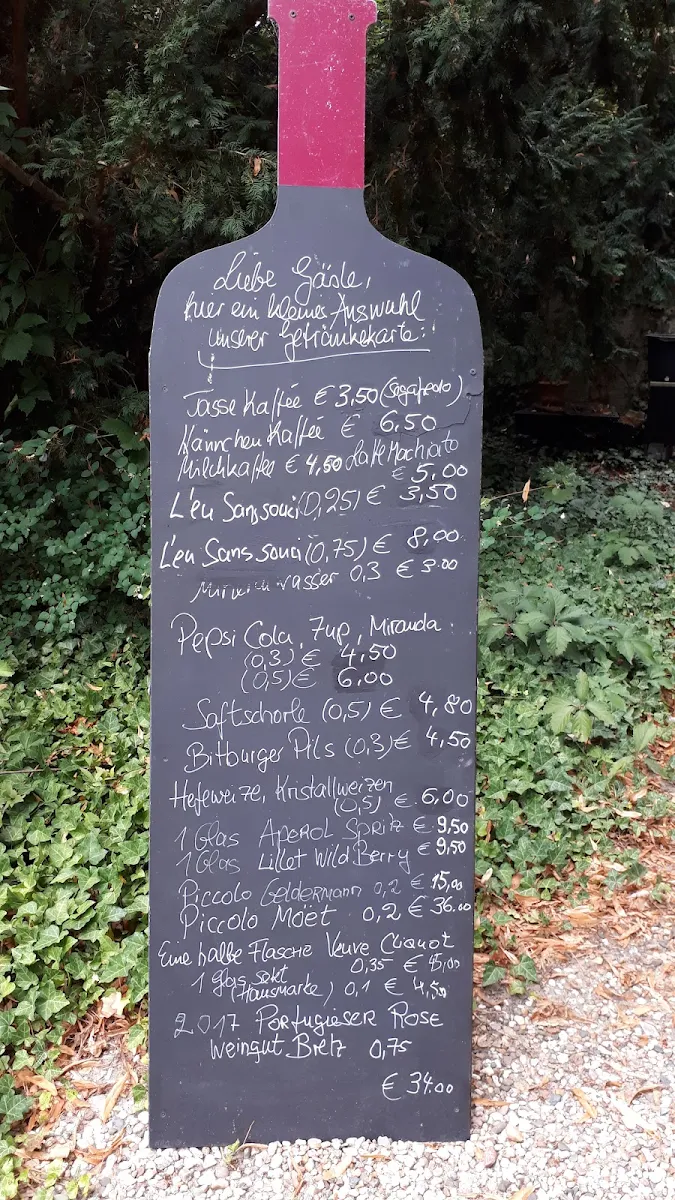 Liebe Gäste,
hier ein kleines Auswahl
unserer Getränkekarte:
Tasse Kaffee € 3,50 (Segafredo)
Kännchen Kaffee € 6,50
Milchkaffee € 4,50 Latte Machiato
€ 5,00
L'eu Sanssouci (0,25) € 3,50
L'eu Sanssouci (0,75) € 8,00
0,3 € 3.00
Pepsi Cola, 7up, Miranda.
(0,3) € 4,50
(0,5) € 6,00
Saftschorle (0,5) € 4,80
Bitburger Pils (0,3) € 4,50
Hefeweize, Kristallweizen
(0,5) € 6,00
1 Glas Aperol Spritz € 9,50
1 Glas Lillet Wild Berry € 9,50
Piccolo Geldermann 0,2 € 15,00
Piccolo Moet 0,2 € 36.00
Eine halbe Flasche Veuve Cliquot
0,35 € 45,00
1 Glas Sekt
(Hausmarke) 0,1 € 4,50
2017 Portugieser Rose
Weingut Bretz 0,75
€ 34.00